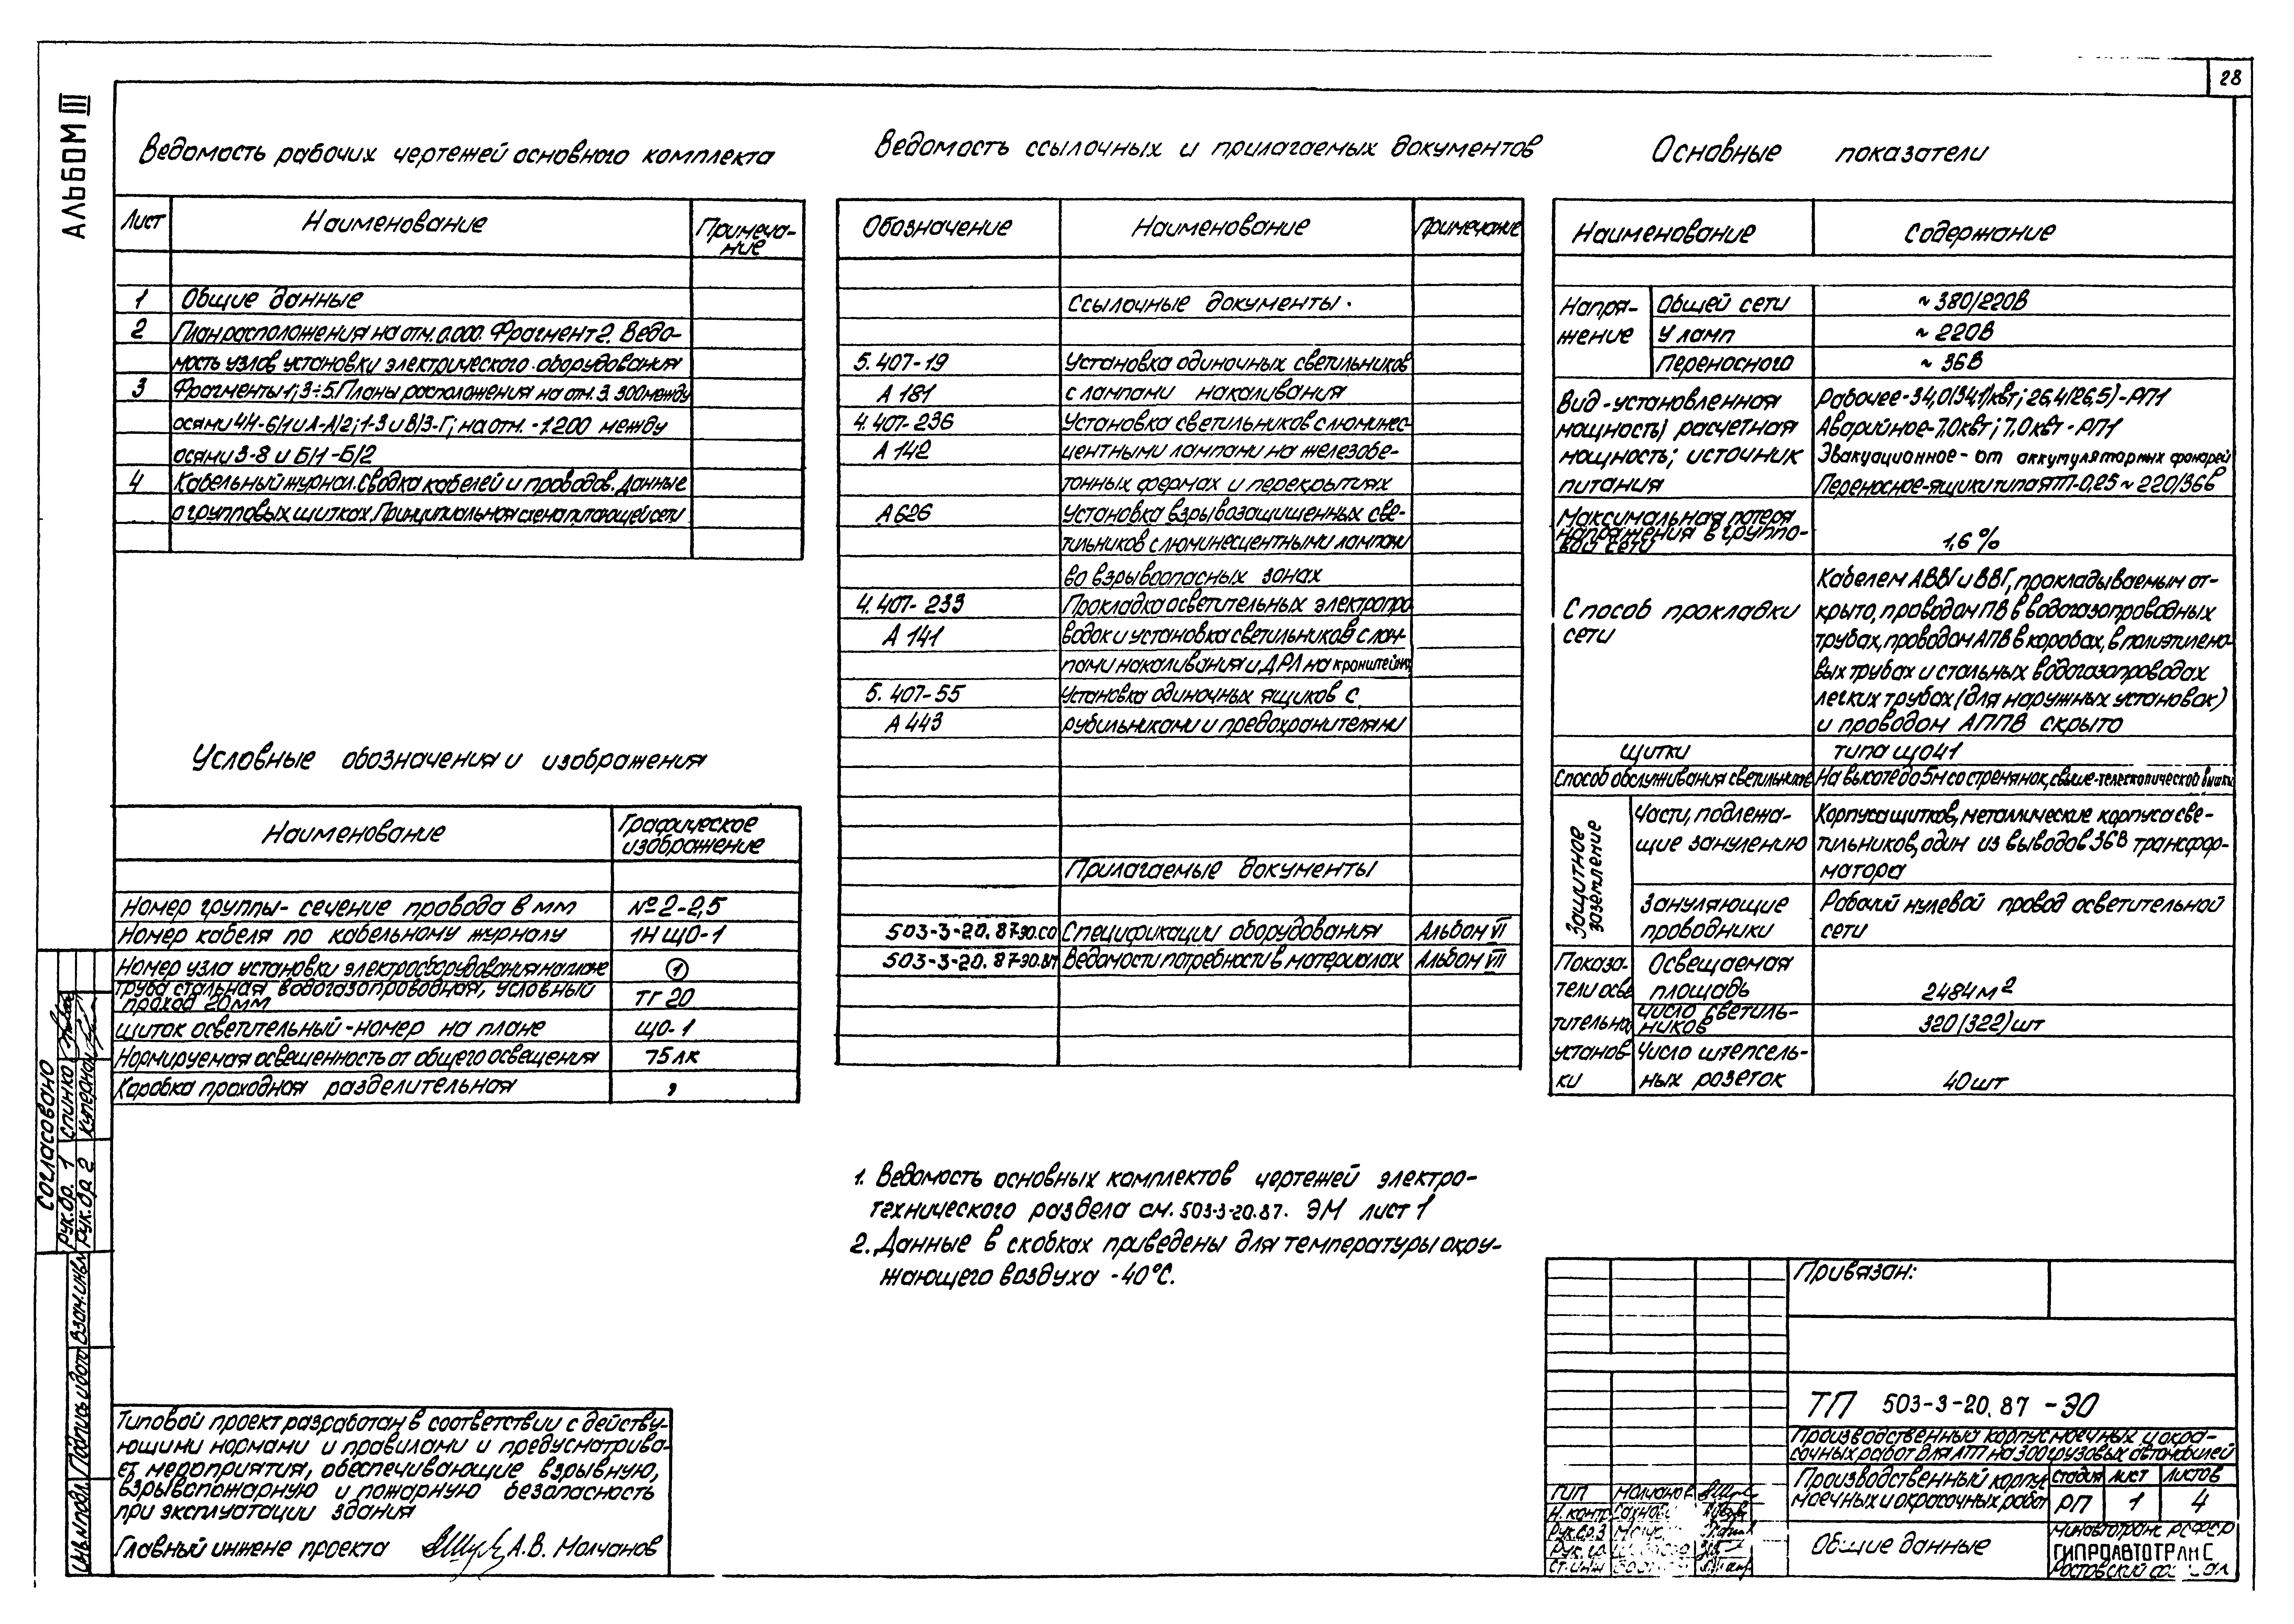 28
Альбом III
Ведомость рабочих чертежей основного комплекта
Лист Наименование Примеча-
ние
1 Общие данные
2 План расположения на отм. 0.000. Фрагмент 2. Ведо-
мость узлов установки электрического оборудования
3 Фрагменты 1; 3÷5. Планы расположения на отм. 3.300 между
осями 4/1-6/1 и А-А/2; 1-3 и В/3-Г; на отм. -1.200 между
осями 3-8 и Б/1-Б/2
4 Кабельный журнал. Сводка кабелей и проводов. Данные
о групповых щитках. Принципиальная схема питающей сети
Условные обозначения и изображения
Наименование Графическое
изображение
Номер группы - сечение провода в мм №2-2,5
Номер кабеля по кабельному журналу 1Н ЩО-1
Номер узла установки электрооборудования на плане 1
Труба стальная водогазопроводная, условный
проход 20мм ТГ 20
Щиток осветительный - номер на плане ЩО-1
Нормируемая освещенность от общего освещения 75 лк
Коробка проходная разделительная
Ведомость ссылочных и прилагаемых документов
Обозначение Наименование Примечание
Ссылочные документы.
5.407-19 Установка одиночных светильников
А 181 с лампами накаливания
4.407-236 Установка светильников с люминес-
А 142 центными лампами на железобе-
тонных фермах и перекрытиях
А626 Установка взрывозащищенных све-
тильников с люминесцентными лампами
во взрывоопасных зонах
4.407-233 Прокладка осветительных электропро
А 141 водок и установка светильников с лам-
пами накаливания и ДРЛ на кронштейнах
5.407-55 Установка одиночных ящиков с
А 443 рубильниками и предохранителями
Прилагаемые документы
503-3-20.87-ЭО.СО Спецификации оборудования Альбом VI
503-3-20.87-ЭО.ВМ Ведомости потребности в материалах Альбом VII
Основные показатели
Наименование Содержание
Напря-
жение
Общей сети ~380/220В
У ламп ~220В
Переносного ~36В
Вид - установленная Рабочее-34,0(34,1)кВт; 26,4(26,5)-РП1
мощность; расчетная Аварийное-7,0кВт; 7,0кВт-РП1
мощность; источник Эвакуационное - от аккумуляторных фонарей
питания Переносное-ящики типа ЯТП-0,25 ~220/36В
Максимальная потеря
напряжения в группо-
вой сети 1,6%
Способ прокладки
сети
Кабелем АВВГ и ВВГ, прокладываемым от-
крыто, проводом ПВ в водогазопроводных
трубах, проводом АПВ в коробах, в полиэтилено-
вых трубах и стальных водогазопроводах
легких трубах (для наружных установок)
и проводом АППВ скрыто
Щитки типа ЩО41
Способ обслуживания светильников На высоте до 5м со стремянок, свыше-телескопической вышки
Защитное
заземление
Части, подлежа-
щие занулению
Корпуса щитков, металлические корпуса све-
тильников, один из выводов 36В трансфор-
матора
Зануляющие
проводники
Рабочий нулевой провод осветительной
сети
Показа-
тели осве
тительной
установ-
ки
Освещаемая
площадь 2484м2
Число светиль-
ников 320(322)шт
Число штепсель-
ных розеток 40шт
1. Ведомость основных комплектов чертежей электро-
технического раздела см. 503-3-20.87. ЭМ лист 1
2. Данные в скобках приведены для температуры окру-
жающего воздуха -40°С.
Согласовано
Рук.бр. 1 Спинко
Рук.бр 2 Куперман
Взам.инв.№
Подпись и дата
Инв.№подл.
Типовой проект разработан в соответствии с действу-
ющими нормами и правилами и предусматрива-
ет мероприятия, обеспечивающие взрывную,
взрывопожарную и пожарную безопасность
при эксплуатации здания
Главный инжене проекта А.В. Молчанов
Привязан:
ТП 503-3-20.87 -ЭО
Производственный корпус моечных и окра-
сочных работ для АТП на 300 грузовых автомобилей
Производственный корпус
моечных и окрасочных работ
Стадия Лист Листов
РП 1 4
ГИП Молчанов
Н.конт
Рук.бр.3
Ст.инж
Общие данные
Минавтотранс РСФСР
ГИПРОАВТОТРАНС
Ростовский филиал